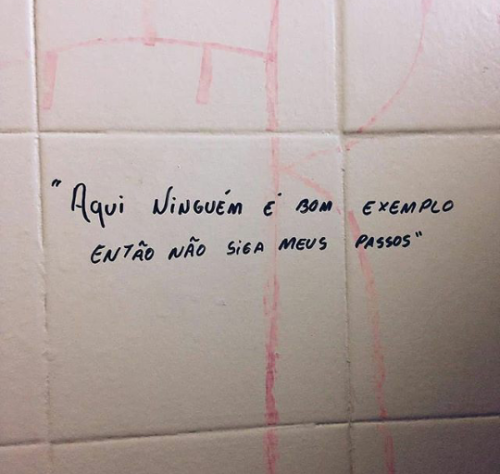 "Aqui Ninguém é bom exemplo
então não siga meus passos"